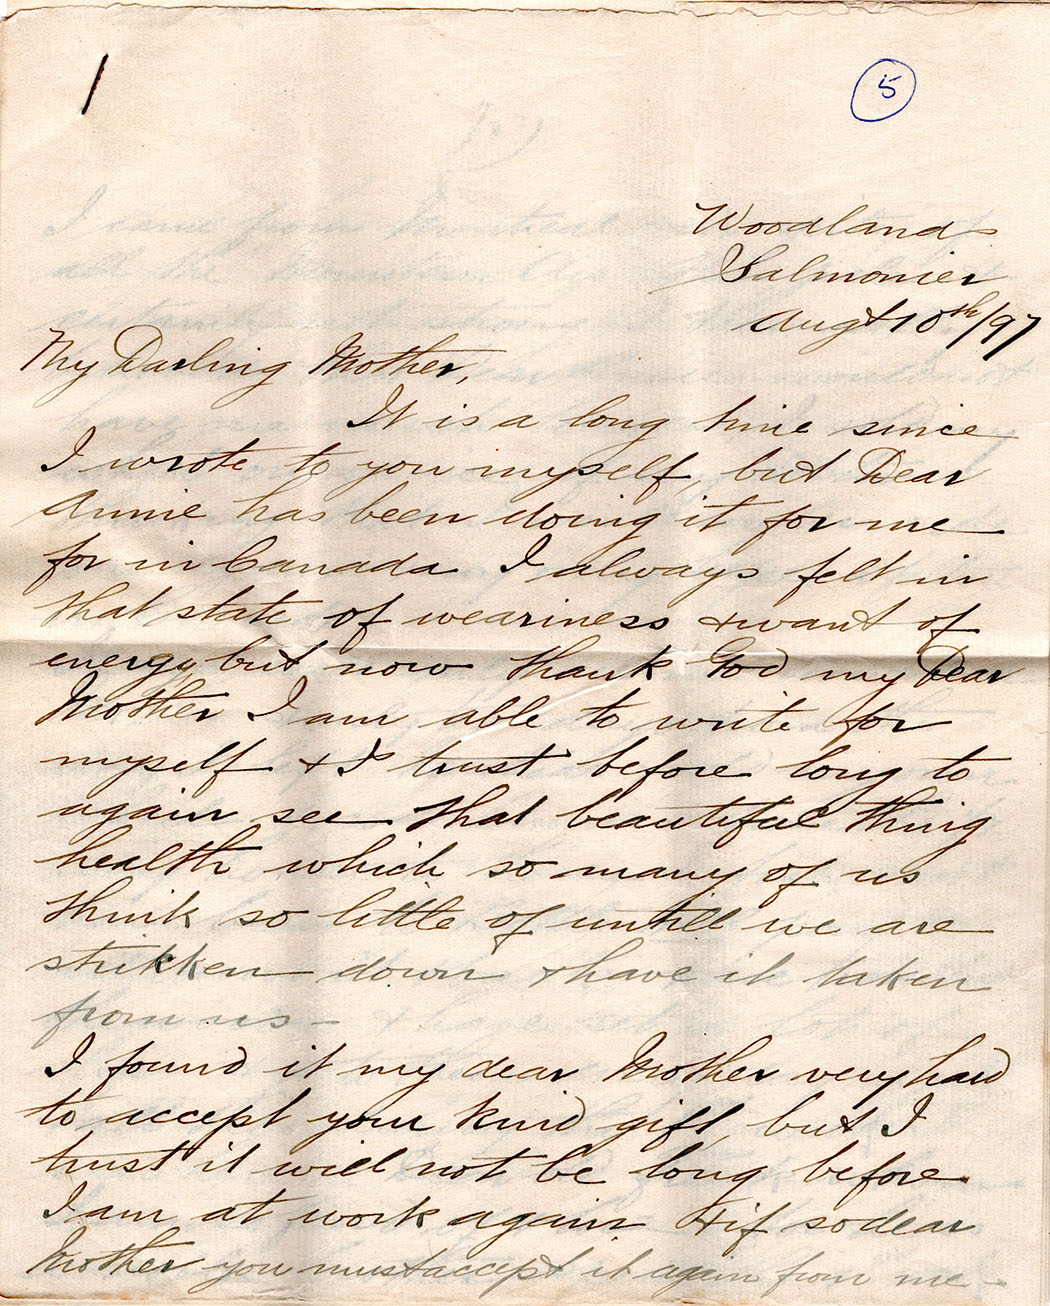 5
Woodland
Salmonier
Augt 10th/97
My Darling Mother,
It is a long time since
I wrote to you myself, but Dear
Annie has been doing it for me
for in Canada I always felt in
that state of weariness & want of
energy but now thank God my Dear
Mother I am able to write for
myself & I trust before long to
again see that beautiful thing
health which so many of us
think so little of untill we are
strikken down & have it taken
from us -
I found it my dear Mother very hard
to accept your kind gift, but I
trust it will not be long before
I am at work again & if so dear
Mother you must accept it again from me -